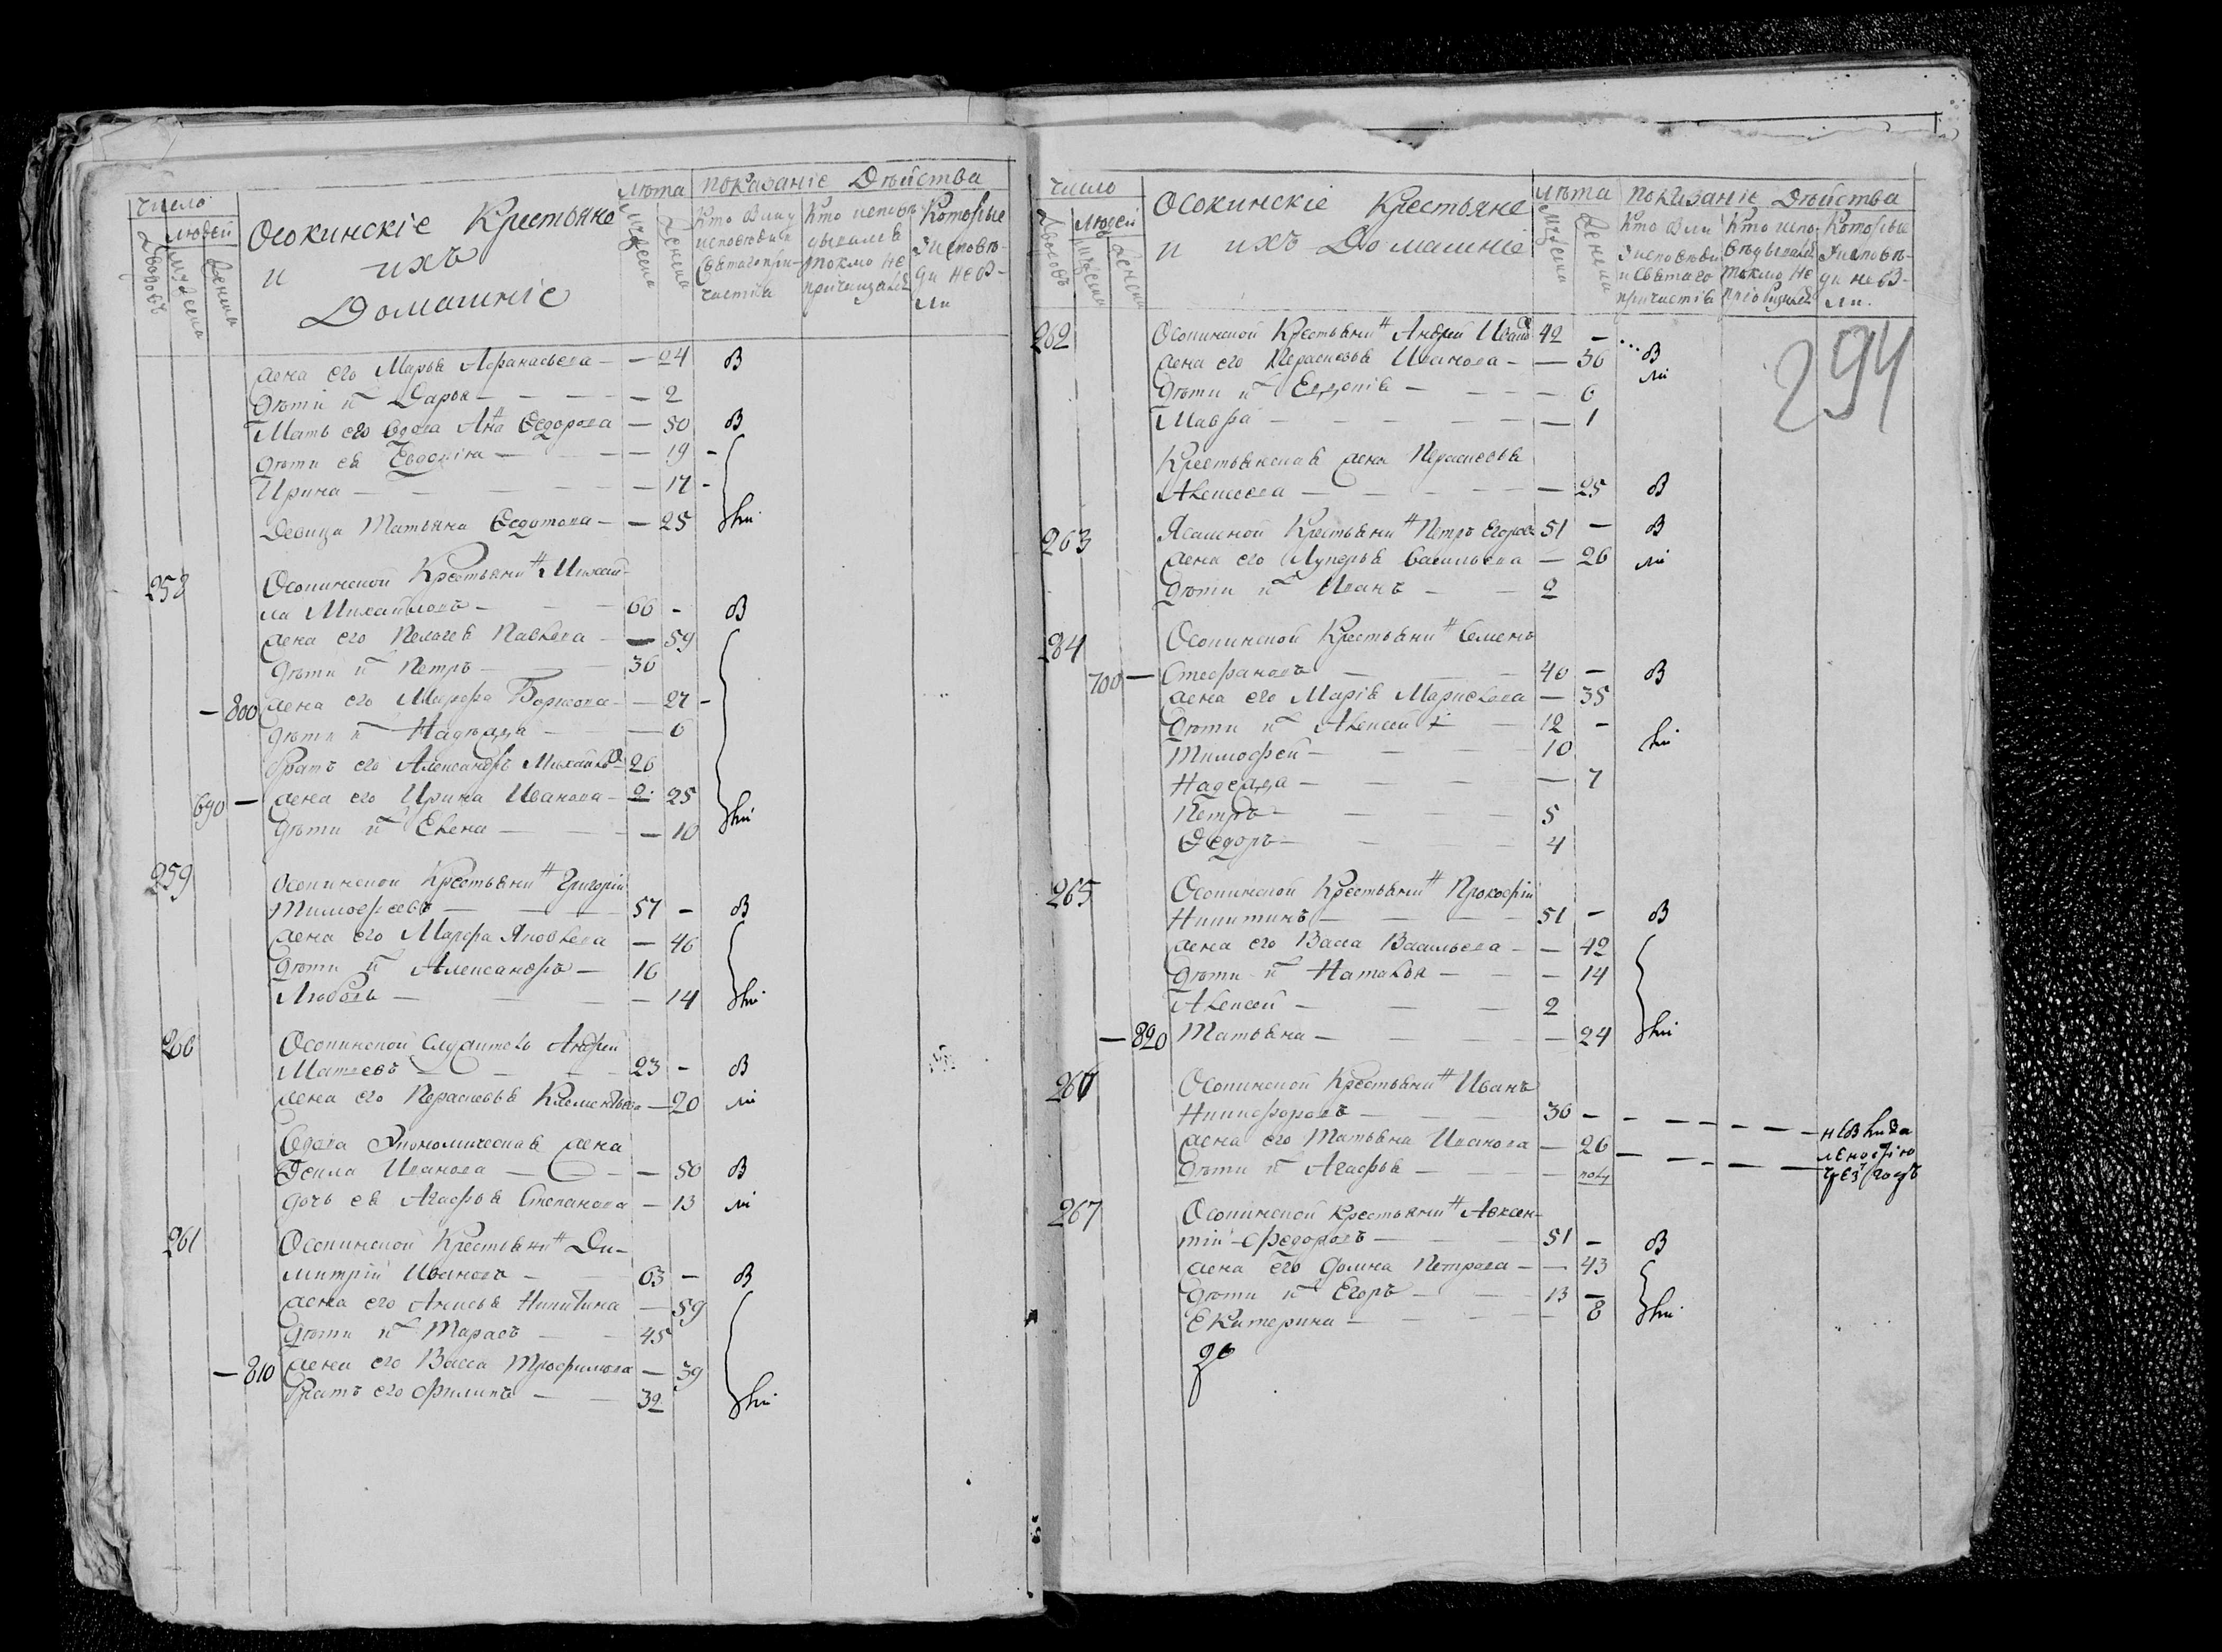 число
людей
Дворовъ
мужеска
женска
Осокинскіе Крестьяне
и ихъ
Домашніе
лѣта
мужеска
женска
показаніе Дѣйства
Кто были у исповѣди и святаго причастія
Кто исповѣдывался токмо не причищался
Которые у исповѣди не были
жена его Марья Афанасьева — — 24 б
дѣти их Дарья — — 2
Мать его вдова Анна Федорова — 50 б
дѣти ея Евдокіна — — 19
Ирина — — 17
Девица Татьяна Федотова — — 25 ыли
258 Осокинской Крестьянинъ Михай-
ла Михайловъ — 66 - б
жена его Пелагея Павлова — 59
дѣти их Петръ — 36
— 800 жена его Марфа Борисова — 27
дѣти их Надежда — — 6
братъ его Александръ Михайловъ 26
690 — жена его Ирина Иванова — 25
дѣти их Елена — — 10 ыли
259 Осокинской Крестьянинъ Григорій
Тимофеевъ — 57 - б
жена его Марфа Яковлева — 46
дѣти их Александръ — 16
Любовь — — 14 ыли
260 Осокинской служитель Андрей
Матвевъ — 23 - б
жена его Парасковья Клементьева — 20 ли
Вдова Экономическая жена
Иванова — — 50 б
дочь ея Агафья Степанова — 13 ли
261 Осокинской Крестьянинъ Ди-
митрій Ивановъ — 63 — б
жена его Анисья Никитина — 59
дѣти их Тарасъ — 45
— 810 жена его Васса Трофимова — 39
братъ его Филипъ — 32 ыли
число
людей
Дворовъ
мужеска
женска
Осокинскіе Крестьяне
и ихъ Домашніе
лѣта
мужеска
женска
показаніе Дѣйства
Кто были у исповѣди и святаго причастія
Кто исповѣдывался токмо не приобщался
Которые у исповѣди не были.
294
262 Осокинской Крестьянинъ Андрей Ивановъ 42 —
жена его Парасковья Иванова — — 36 б
дѣти их Евдокія — — 6 ли
Мавра — — 1
Крестьянская жена Парасковья
Алексеева — — 25 б
263 Ясашной Крестьянинъ Петръ Егоровъ 51 — б
жена его Лукерья Васильева — 26 ли
дѣти их Иванъ — 2
264 Осокинской Крестьянинъ Семенъ
700 — Стефановъ — 40 — б
жена его Марія — 35
дѣти их Алексей — 12 -
Тимофей — 10 ыли
Надежда — — 7
Петръ — 5
Федоръ — 4
265 Осокинской Крестьянинъ Прокофій
Никитинъ — 51 — б
жена его Васса Васильева — — 42
дѣти их Наталья — — 14
Алексей — 2
— 820 Татьяна — — 24 ыли
266 Осокинской Крестьянинъ Иванъ
Никифоровъ — 36 — — — — — небыли за
жена его Татьяна Иванова — 26 — — — — леностію
дѣти их Агафья — — полу чрезъ годъ
267 Осокинской Крестьянинъ Авксен-
тій Федоровъ — 51 — б
жена его Домна Петрова — — 43
дѣти их Егоръ — 13 —
Екатерина — — 8 ыли